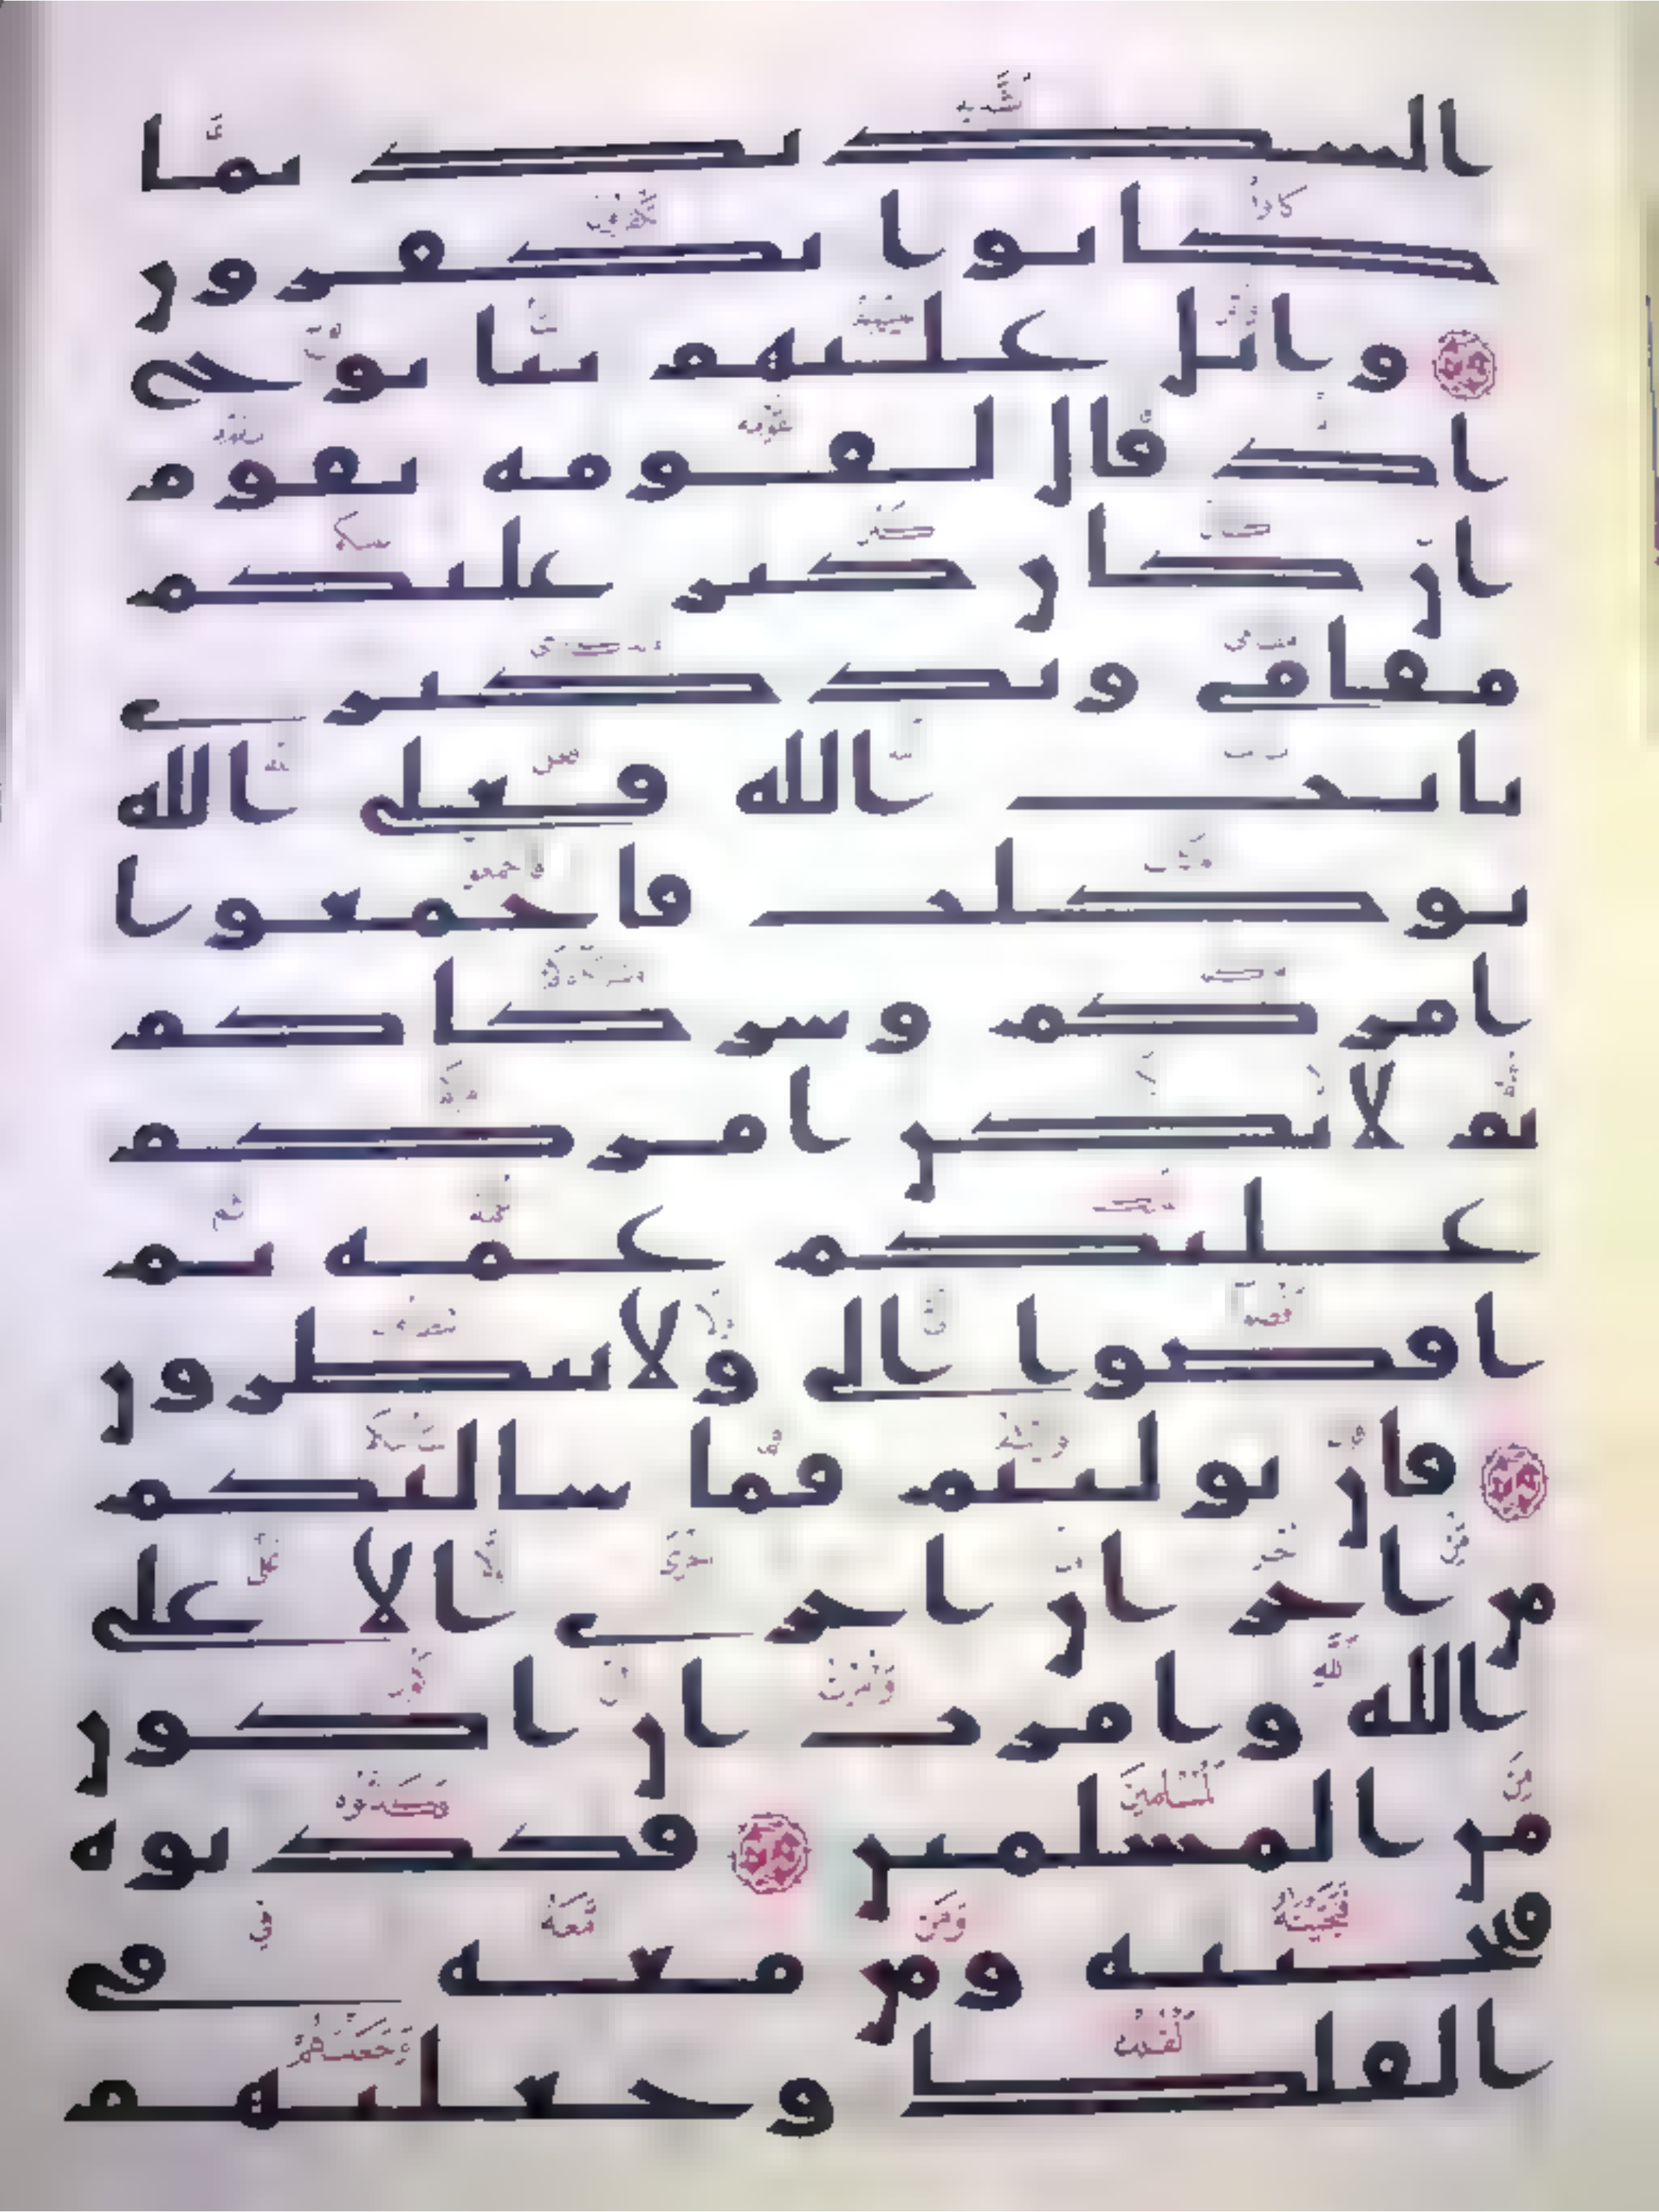 الشديد بما
كانوا يكفرون
واتل عليهم نبا نوح
اذ قال لقومه يقوم
ان كان كبر عليكم
مقامي وتذكيري
بايت الله فعلى الله
توكلت فاجمعوا
امركم وشركاكم
ثم لا يكن امركم
عليكم غمة ثم
اقضوا الي ولا تنظرون
فان توليتم فما سالتكم
من اجر ان اجري الا على
الله وامرت ان اكون
من المسلمين فكذبوه
فنجينه ومن معه في
الفلك وجعلنهم